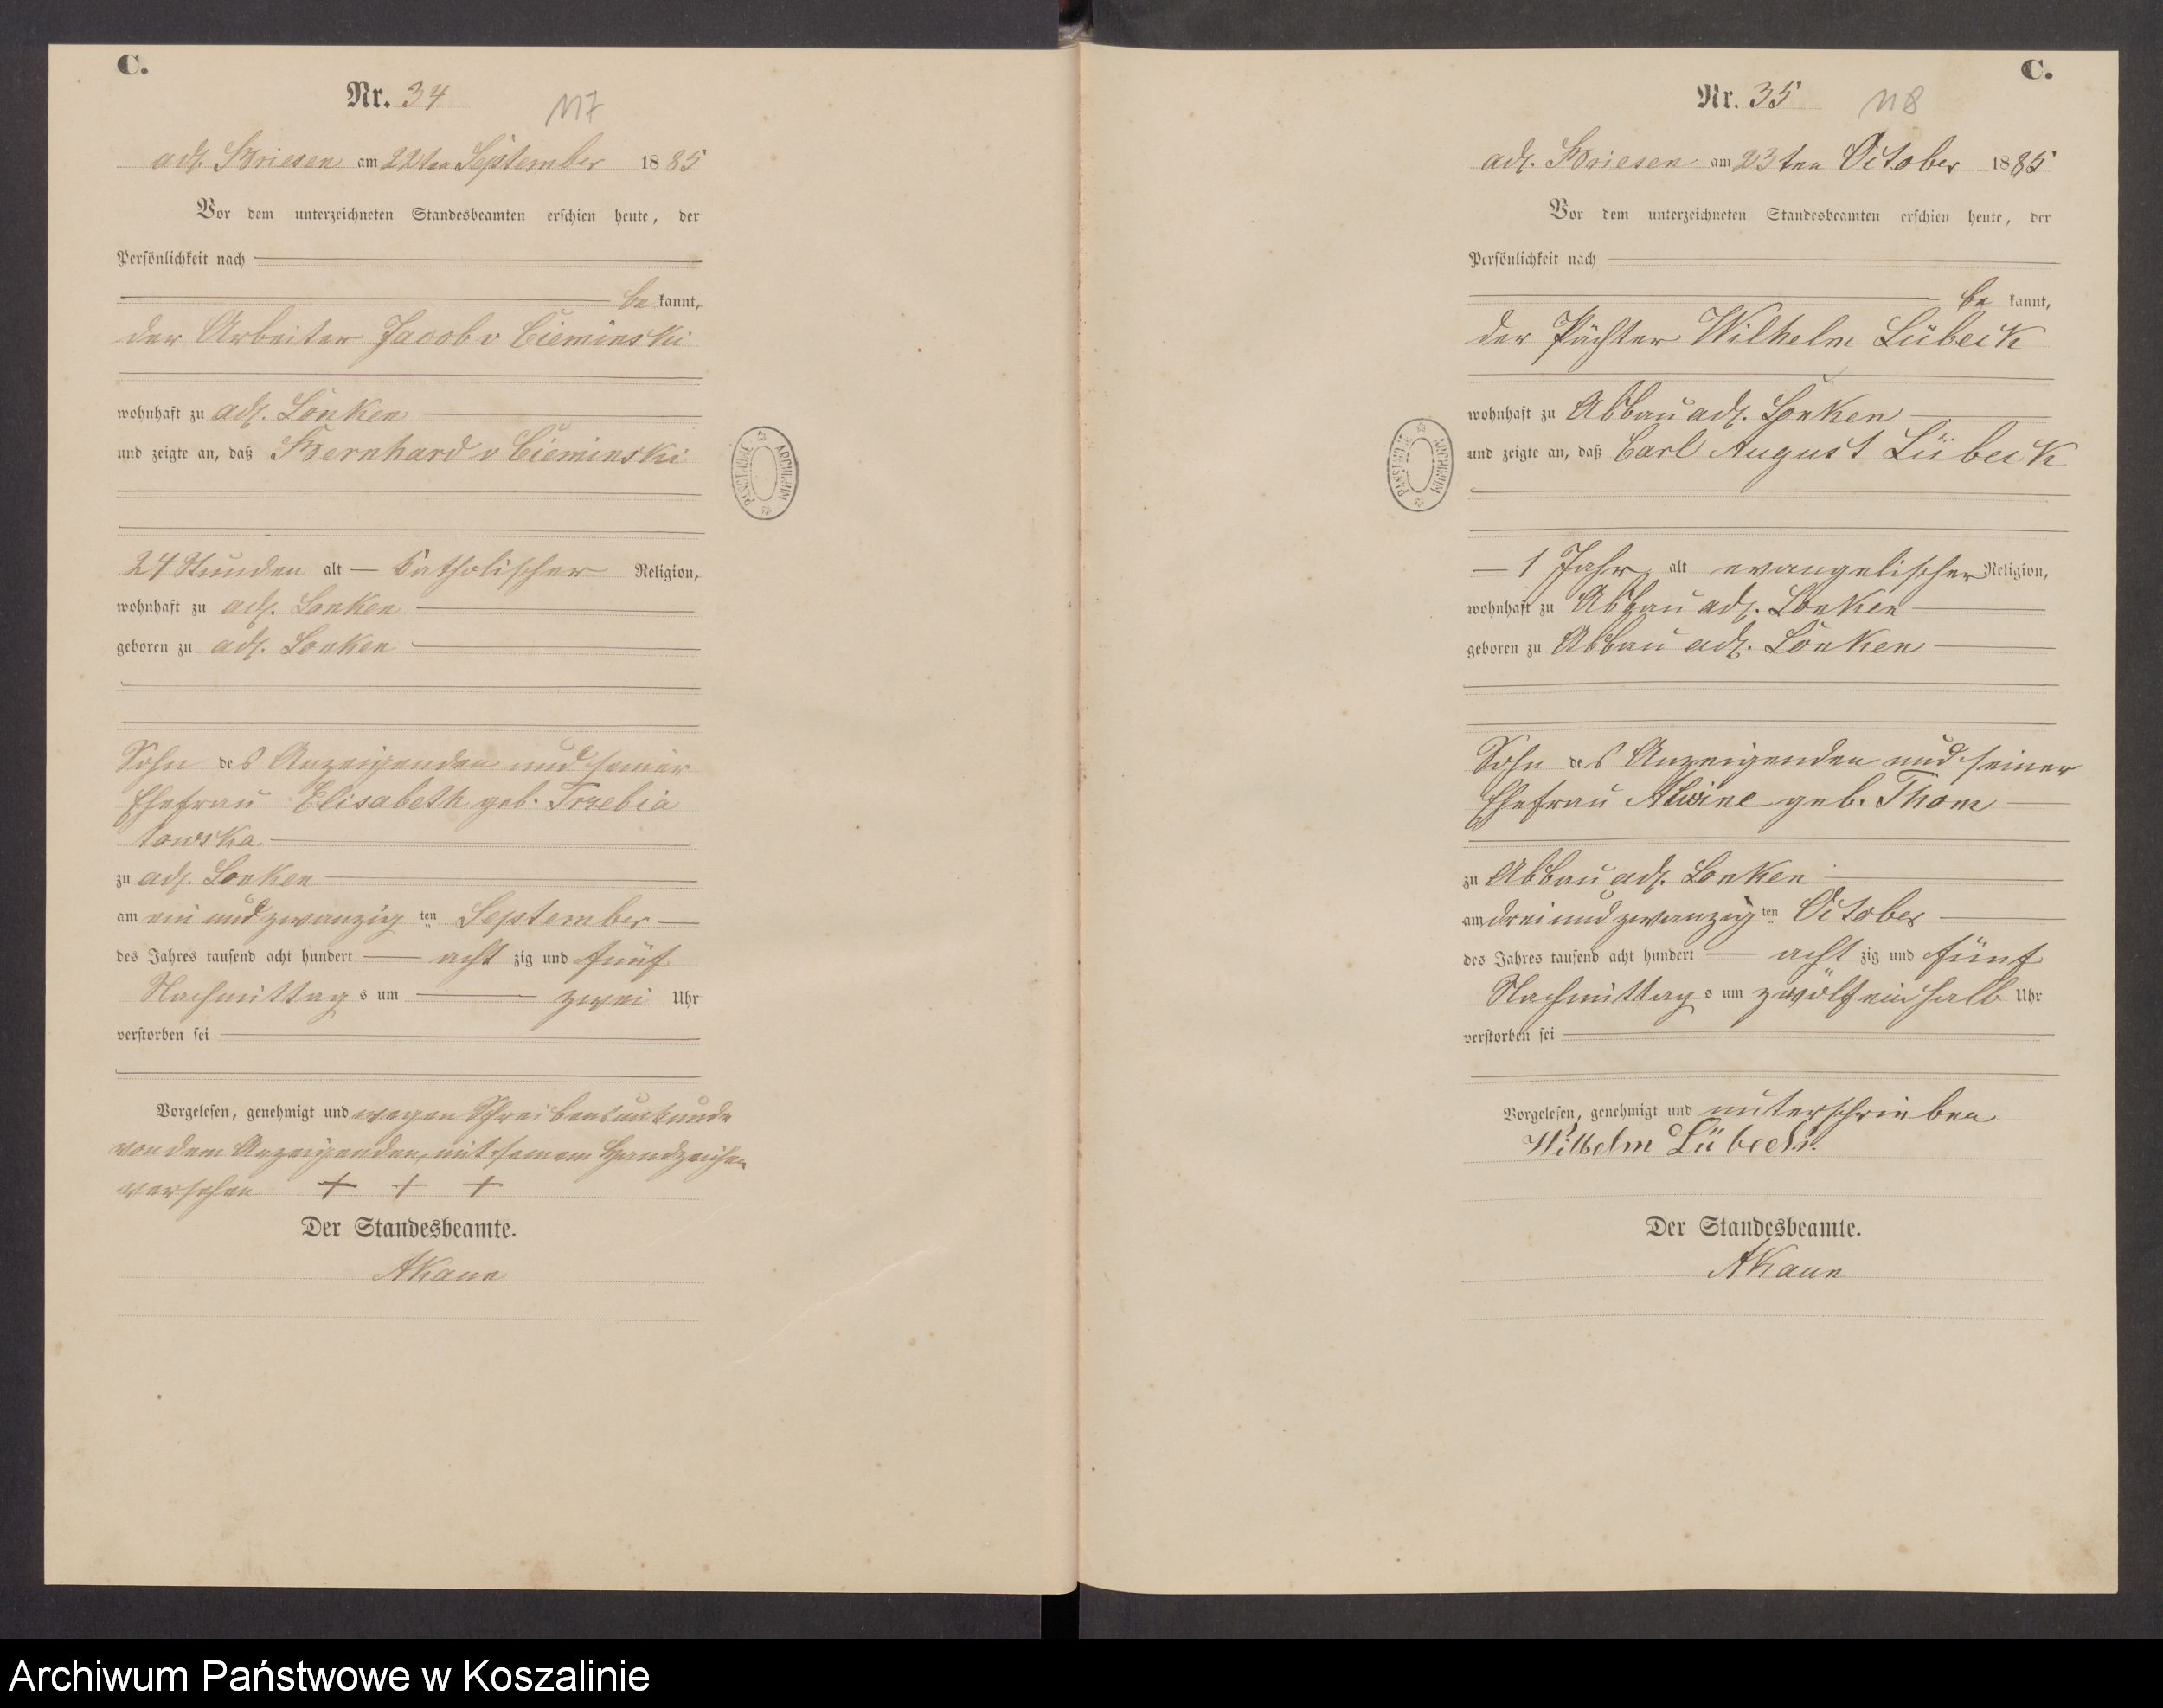 C.
Nr. 34
117
adl. Briesen am 22ten September 1885
Vor dem unterzeichneten Standesbeamten erschien heute, der
Persönlichkeit nach
be kannt,
der Arbeiter Jacob v Cieminski
wohnhaft zu adl. Lonken
und zeigte an, daß Bernhard v Cieminski
24 Stunden alt — katholischer Religion,
wohnhaft zu adl. Lonken
geboren zu adl. Lonken
Sohn des Anzeigenden und seiner
Ehefrau Elisabeth geb. Trzebia
towska
zu adl. Lonken
am ein und zwanzig ten September
des Jahres tausend acht hundert — acht zig und fünf
Nachmittag s um — zwei Uhr
verstorben sei
Vorgelesen, genehmigt und wegen Schreibensunkunde
von dem Anzeigenden mit seinem Handzeichen
versehen + + +
Der Standesbeamte.
AKaun
ARCHIWUM PAŃSTWOWE
C.
Nr. 35
118
adl. Briesen am 23ten October 1885
Vor dem unterzeichneten Standesbeamten erschien heute, der
Persönlichkeit nach
be kannt,
der Pächter Wilhelm Lübeck
wohnhaft zu Abbau adl. Lonken
und zeigte an, daß Carl August Lübeck
— 1 Jahr alt evangelischer Religion,
wohnhaft zu Abbau adl. Lonken
geboren zu Abbau adl. Lonken
Sohn des Anzeigenden und seiner
Ehefrau Alwine geb. Thom
zu Abbau adl. Lonken
am drei und zwanzig ten October
des Jahres tausend acht hundert — acht zig und fünf
Nachmittag s um zwölf ein halb Uhr
verstorben sei
Vorgelesen, genehmigt und unterschrieben
Wilhelm Lübeck.
Der Standesbeamte.
AKaun
ARCHIWUM PAŃSTWOWE
Archiwum Państwowe w Koszalinie